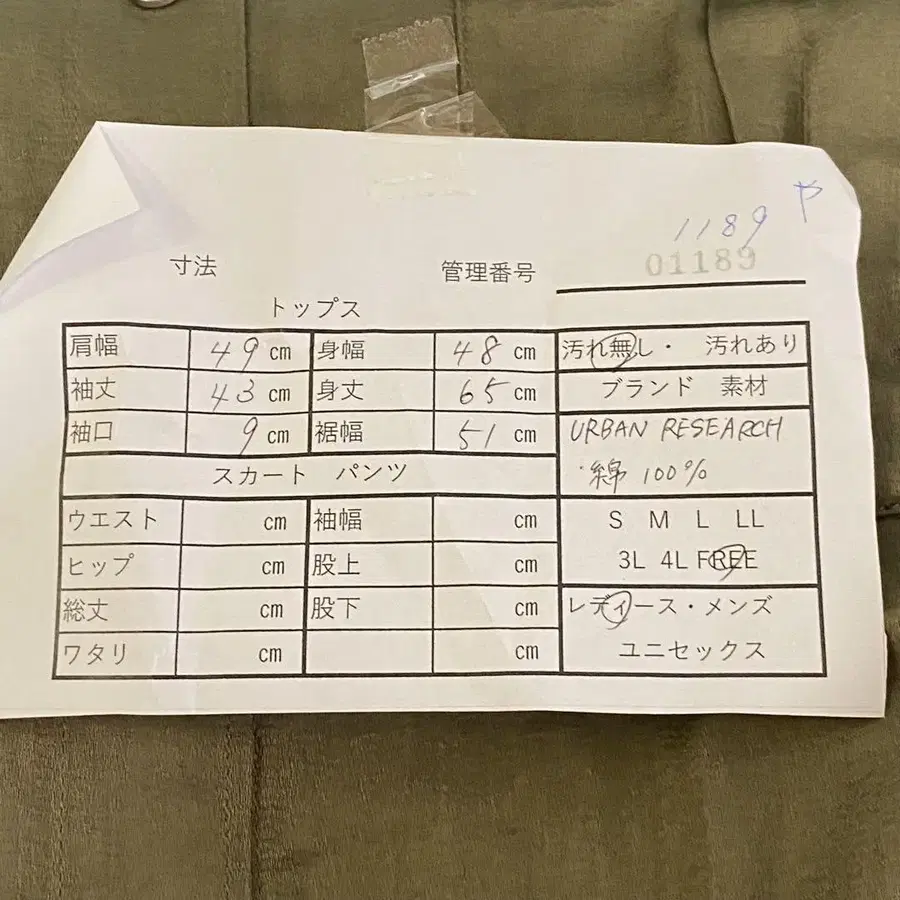 1189 や
寸法 管理番号 01189
トップス
肩幅 49 cm 身幅 48 cm 汚れ無し・ 汚れあり
袖丈 43 cm 身丈 65 cm ブランド 素材
袖口 9 cm 裾幅 51 cm URBAN RESEARCH
スカート パンツ ・綿 100%
ウエスト cm 袖幅 cm S M L LL
ヒップ cm 股上 cm 3L 4L FREE
総丈 cm 股下 cm レディース・メンズ
ワタリ cm cm ユニセックス